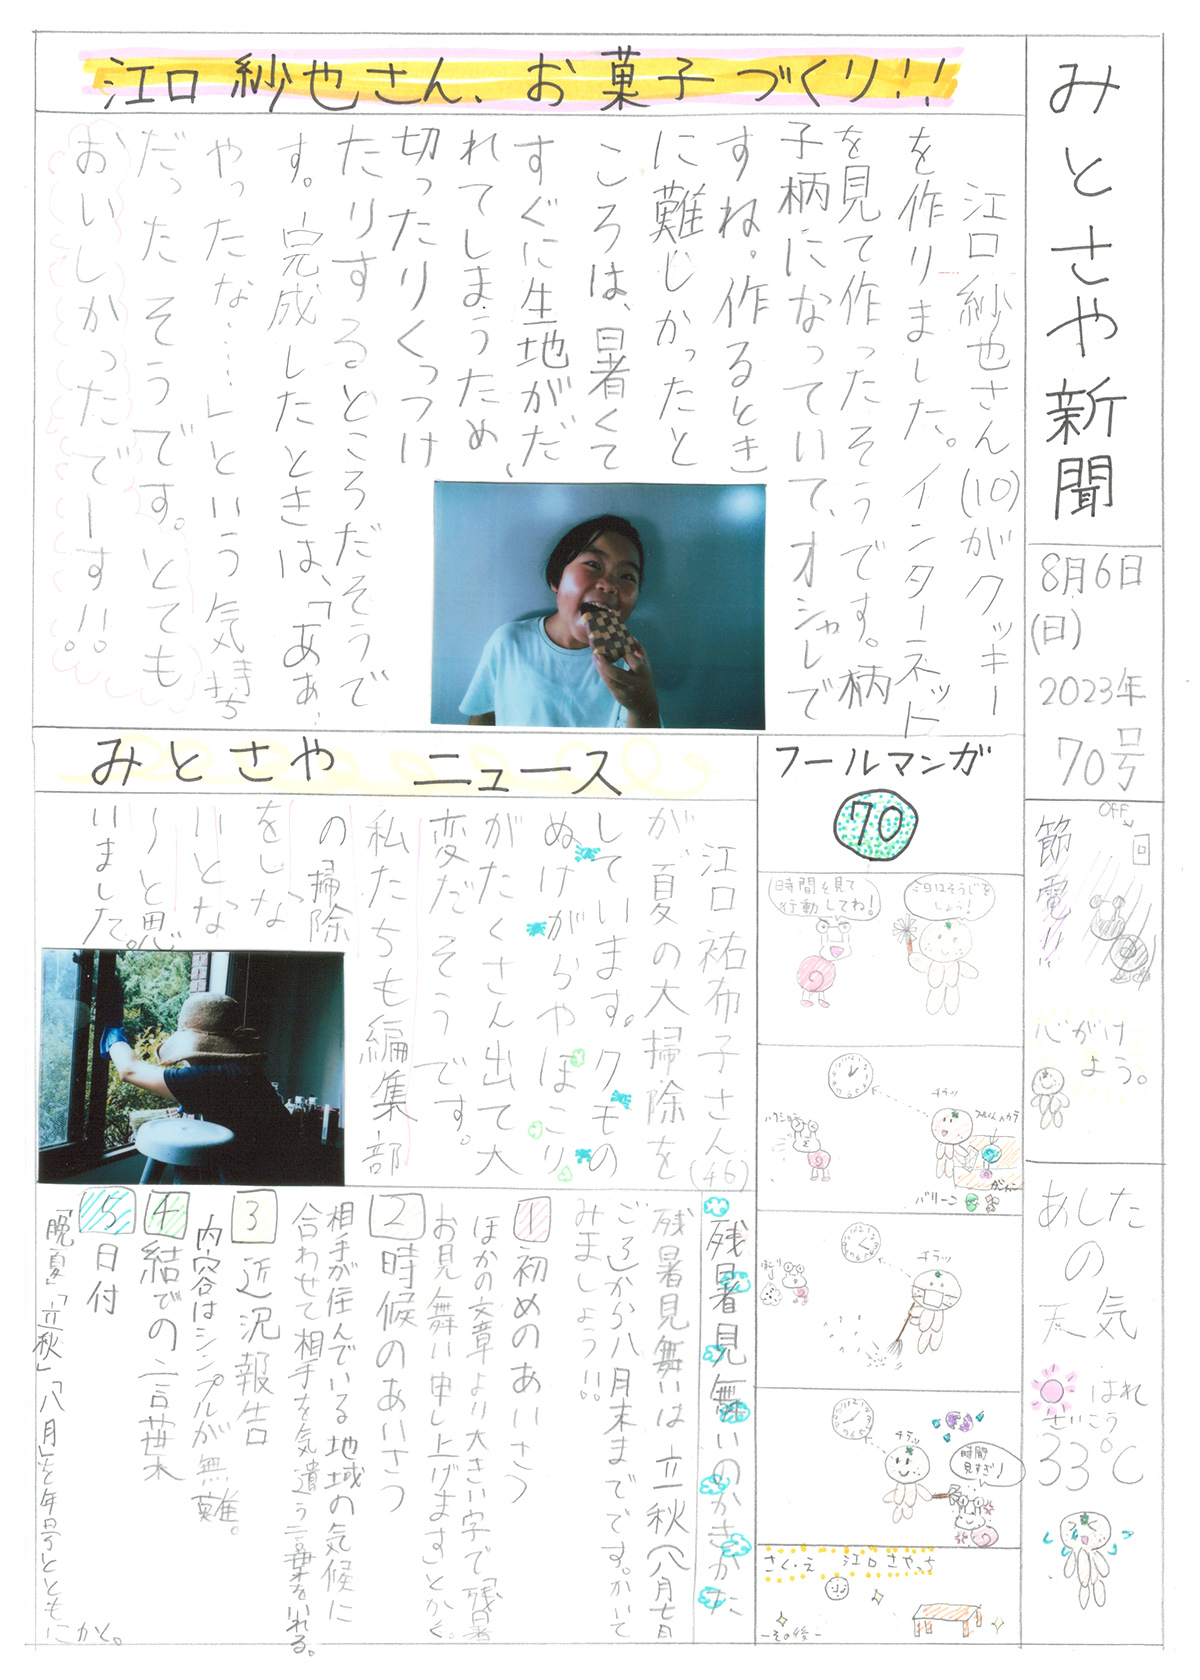 みとさや新聞
8月6日
(日)
2023年
70号
江口紗也さん、お菓子づくり!!
江口紗也さん(10)がクッキー
を作りました。インターネット
を見て作ったそうです。柄
子柄になっていて、オシャレで
すね。作るとき
に難じかったと
ころは、暑くて
すぐに生地がだ
れてしまうため、
切ったりくっつけ
たりするところだそうで
す。完成したときは、「あぁ…
やったな……」という気持ち
だった そうです。とても
おいしかったでーす!!。
みとさや ニュース
江口祐布子さん(46)
が、夏の大掃除を
しています。クモの
ぬけがらやほこり
がたくさん出て大
変だ そうです。
私たちも編集部
の掃除
をしな
いとな
〜と思
いました。
フールマンガ
70
今日はそうじを
しよう!
時間を見て
行動してね!
チラッ
バリーン
チラッ
チラッ
時間
見すぎ!
さく・え 江口さやっち
ーその後ー
OFF
節電!!
心がけ
よう。
あした
の
天気
はれ
さいこう
33℃
残暑見舞いのかきかた
残暑見舞いは立秋(八月七日
ごろ)から八月末までです。かいて
みましょう!!
1 初めのあいさつ
ほかの文章より大きい字で「残暑
お見舞い申し上げます」とかく。
2 時候のあいさつ
相手が住んでいる地域の気候に
合わせて相手を気遣う言葉をいれる。
3 近況報告
内容はシンプルが無難。
4 結びの言葉
5 日付
「晩夏」「立秋」「八月」などと年号とともにかく。